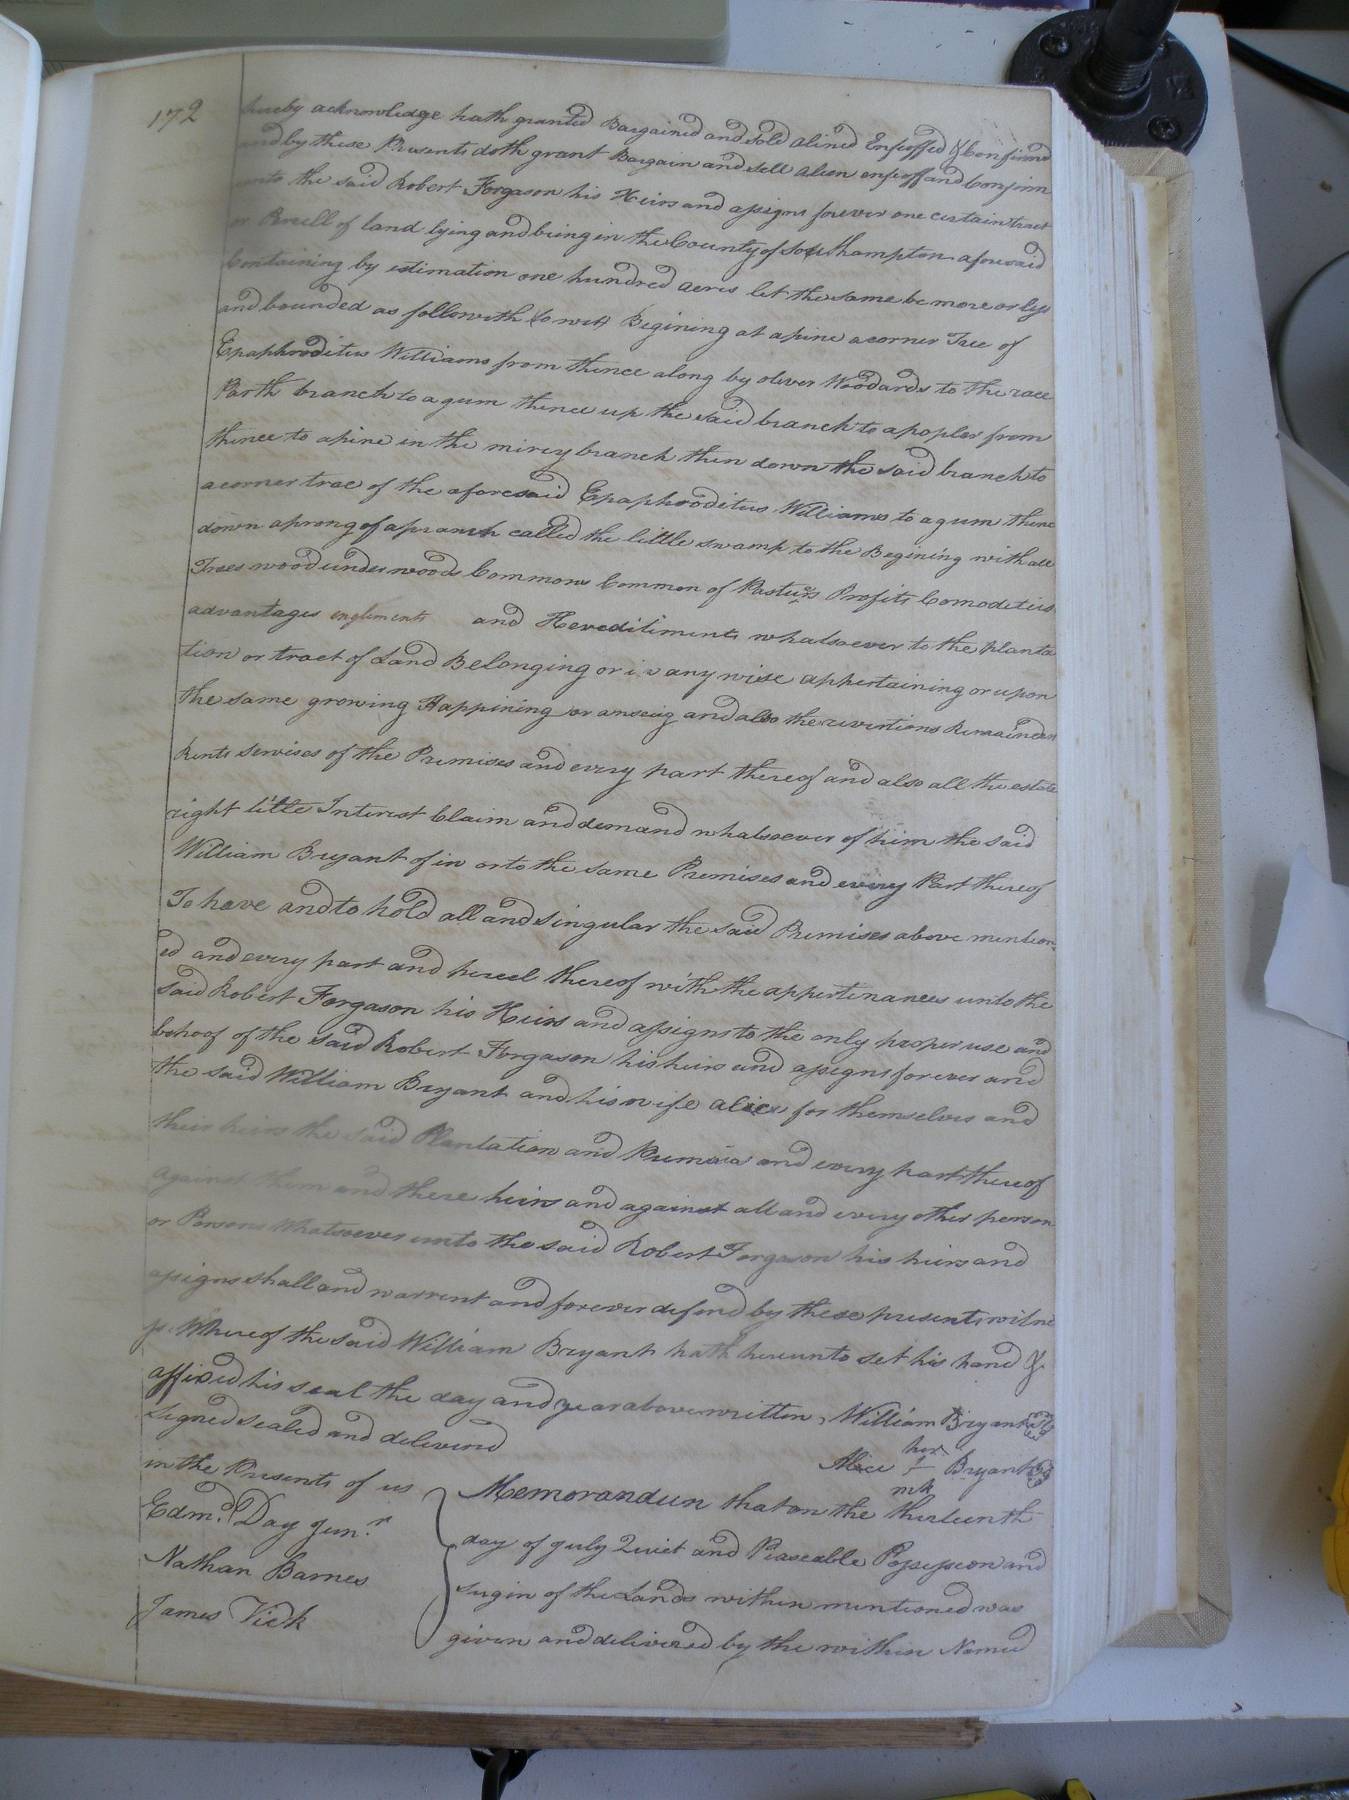 172
hereby acknowledge hath granted Bargained and sold alined Enfeoffed & Confirmd
and by these Presents doth grant Bargain and sell alien enfeoff and Confirm
unto the said Robert Forgason his Heirs and assigns forever one certain tract
or Parcell of land lying and being in the County of Southampton aforesaid
Containing by estimation one hundred acres let the same be more or less
and bounded as followith (to wit) Begining at a pine a corner Tree of
Epaphroditus Williams from thence along by oliver Woodards to the race
Parth branch to a gum thence up the said branch to a poplar from
thence to a pine in the mirey branch then down the said branch to
a corner trae of the aforesaid Epaphroditus Williams to a gum thence
down a prong of a pranch called the little swamp to the Begining with all
Trees wood under woods Commons Common of Pastures Profits Comodities
advantages and Herediliments whatsoever to the planta
tion or tract of Land Belonging or in any wise appertaining or upon
the same growing Happining or arrseig and also the revertions Remainders
Rents servises of the Premises and every part thereof and also all the estate
right title Interest Claim and demand whatsoever of him the said
William Bryant of in or to the same Premises and every Part thereof
To have and to hold all and singular the said Premises above mention
ed and every part and percel thereof with the appertinances unto the
said Robert Forgason his Heirs and assigns to the only proper use and
behoof of the said Robert Forgason his heirs and assigns forever and
the said William Bryant and his wife alice for themselves and
their heirs the said Plantation and Premises and every part thereof
against them and there heirs and against all and every other person
or Persons Whatsoever unto the said Robert Forgason his heirs and
assigns shall and warrent and forever defend by these presents witne
ss Whereof the said William Bryant hath hereunto set his hand &
affixed his seal the day and year above written, William Bryant
Signed sealed and deliverd
her
Alice + Bryant
mk
in the Presents of us
Edmd. Day Junr.
Nathan Barnes
James Vick
Memorandun that on the thirteenth
day of July Quiet and Peaseable Possession and
of the Lands within mentioned was
given and delivered by the within Named